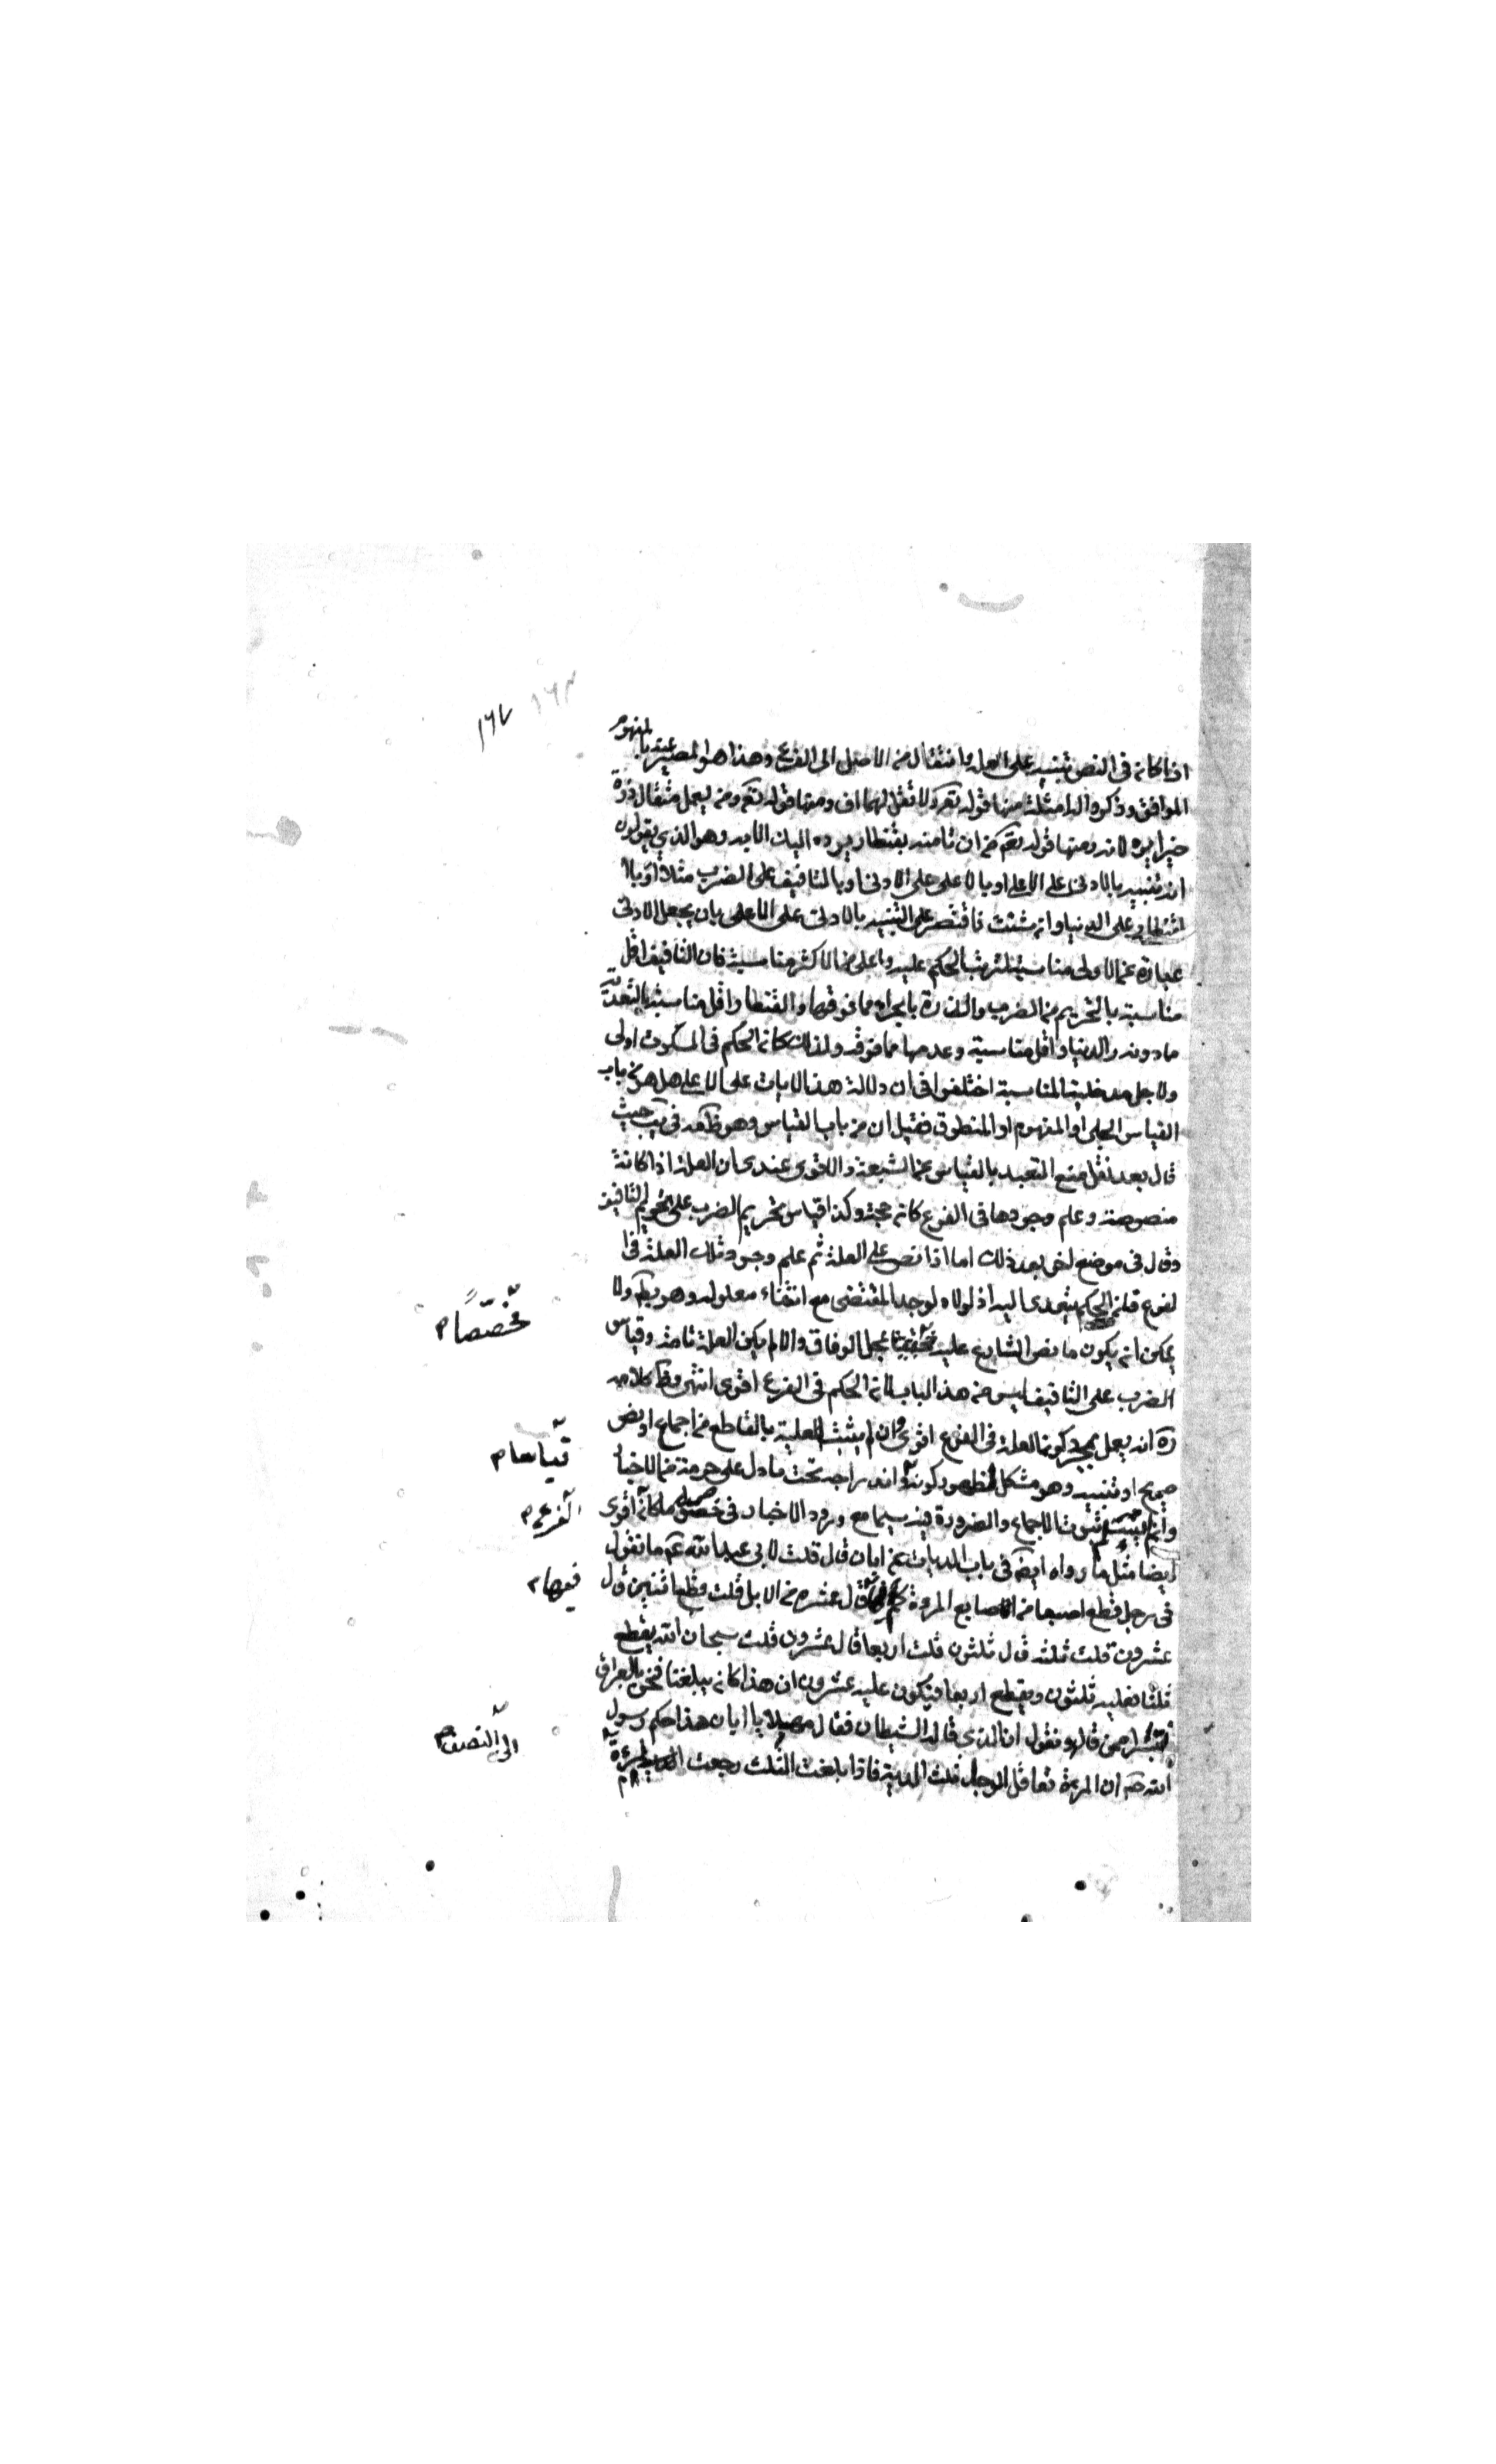 ١٦٧
اذا كان فى النص تنبيه على العلة وانتقال من الاصل الى الفرع وهذا هو المعبر عنه بالمفهوم
الموافق وذكروا له امثلة منها قوله تعه ولا تقل لهما اف ومنها قوله تعه ومن يعمل مثقال ذرة
خيرا يره لانه ومنها قوله تعه من ان تامنه بقنطار يرده اليك الايه وهو الذى يقولون
انه تنبيه بالادنى على الاعلى او بالاعلى على الادنى او بالتافيف على الضرب مثلا او بالا
لقنطار على الدينار وان شئت فاقتصر على التنبيه بالادنى على الاعلى بان يجعل الادنى
عبارة عن الاولى مناسبة لترتب الحكم عليه والاعلى من الاكثر مناسبة فان التافيف اقل
مناسبة بالتحريم من الضرب والذرة بالجزاء مما فوقها والقنطار اقل مناسبة بالتعدية
مادونه والدينار اقل مناسبة وعدمها مما فوقه ولذلك كان الحكم فى المسكوت اولى
ولاجل مدخلية المناسبة اختلفوا فى ان دلالة هذه الايات على الاعلى هل هو من باب
القياس الجلى او المفهوم او المنطوق فقيل ان من باب القياس وهو ظ مه فى يب حيث
قال بعد نقل منع التعبد بالقياس عن الشيعة والاقوى عندى ان العلة اذا كانت
منصوصة وعلم وجودها فى الفرع كان حجة وكذا قياس تحريم الضرب على تحريم التافيف
وقال فى موضع اخى بعد ذلك اما اذا نص على العلة ثم علم وجود تلك العلة فى ا
لفرع قلنا الحكم يتعدى اليه اذ لولاه لوجد المقتضى مع انتفاء معلوله وهو بط ولا
يمكن ان يكون ما نص الشارع عليه بمحل الوفاق والا لم يكن العلة تامة وقياس
الضرب على التافيف ليس من هذا الباب لان الحكم فى الفرع اقوى انتهى وظ كلامه
ره انه يعمل بمجرد كون العلة فى الفرع اقوى وان لم يثبت العلية بالقاطع من اجماع او نص
صريح او تنبيه وهو مشكل لظهور كونه واندراجه تحت ما دل على حرمة من الاخبا
وان لم يثبت الاجماع والضرورة فيه سيما مع ورود الاخبار فى خصوص ما كان اقوى
ايضا مثل ما رواه ايضه فى باب الديات عن ابان قال قلت لابى عبد الله عه ما تقول
فى رجل قطع اصبعا من اصابع المرءة كم فيها قال عشرة من الابل قلت قطع اثنين قال
عشرون قلت ثلثة قال ثلثون قلت اربعا قال عشرون قلت سبحان الله يقطع
ثلثا فعليه ثلثون ويقطع اربعا فيكون عليه عشرون ان هذا كان يبلغنا ونحن بالعراق
فنتبرء ممن قاله ونقول ان الذى قاله الشيطان فقال مهلا يا ابان هذا حكم رسول
الله صه ان المرءة تعاقل الرجل ثلث الدية فاذا بلغت الثلث رجعت المرءة
مخصصا م
قياسا م
الفرع م
فيها م
الى النصف م